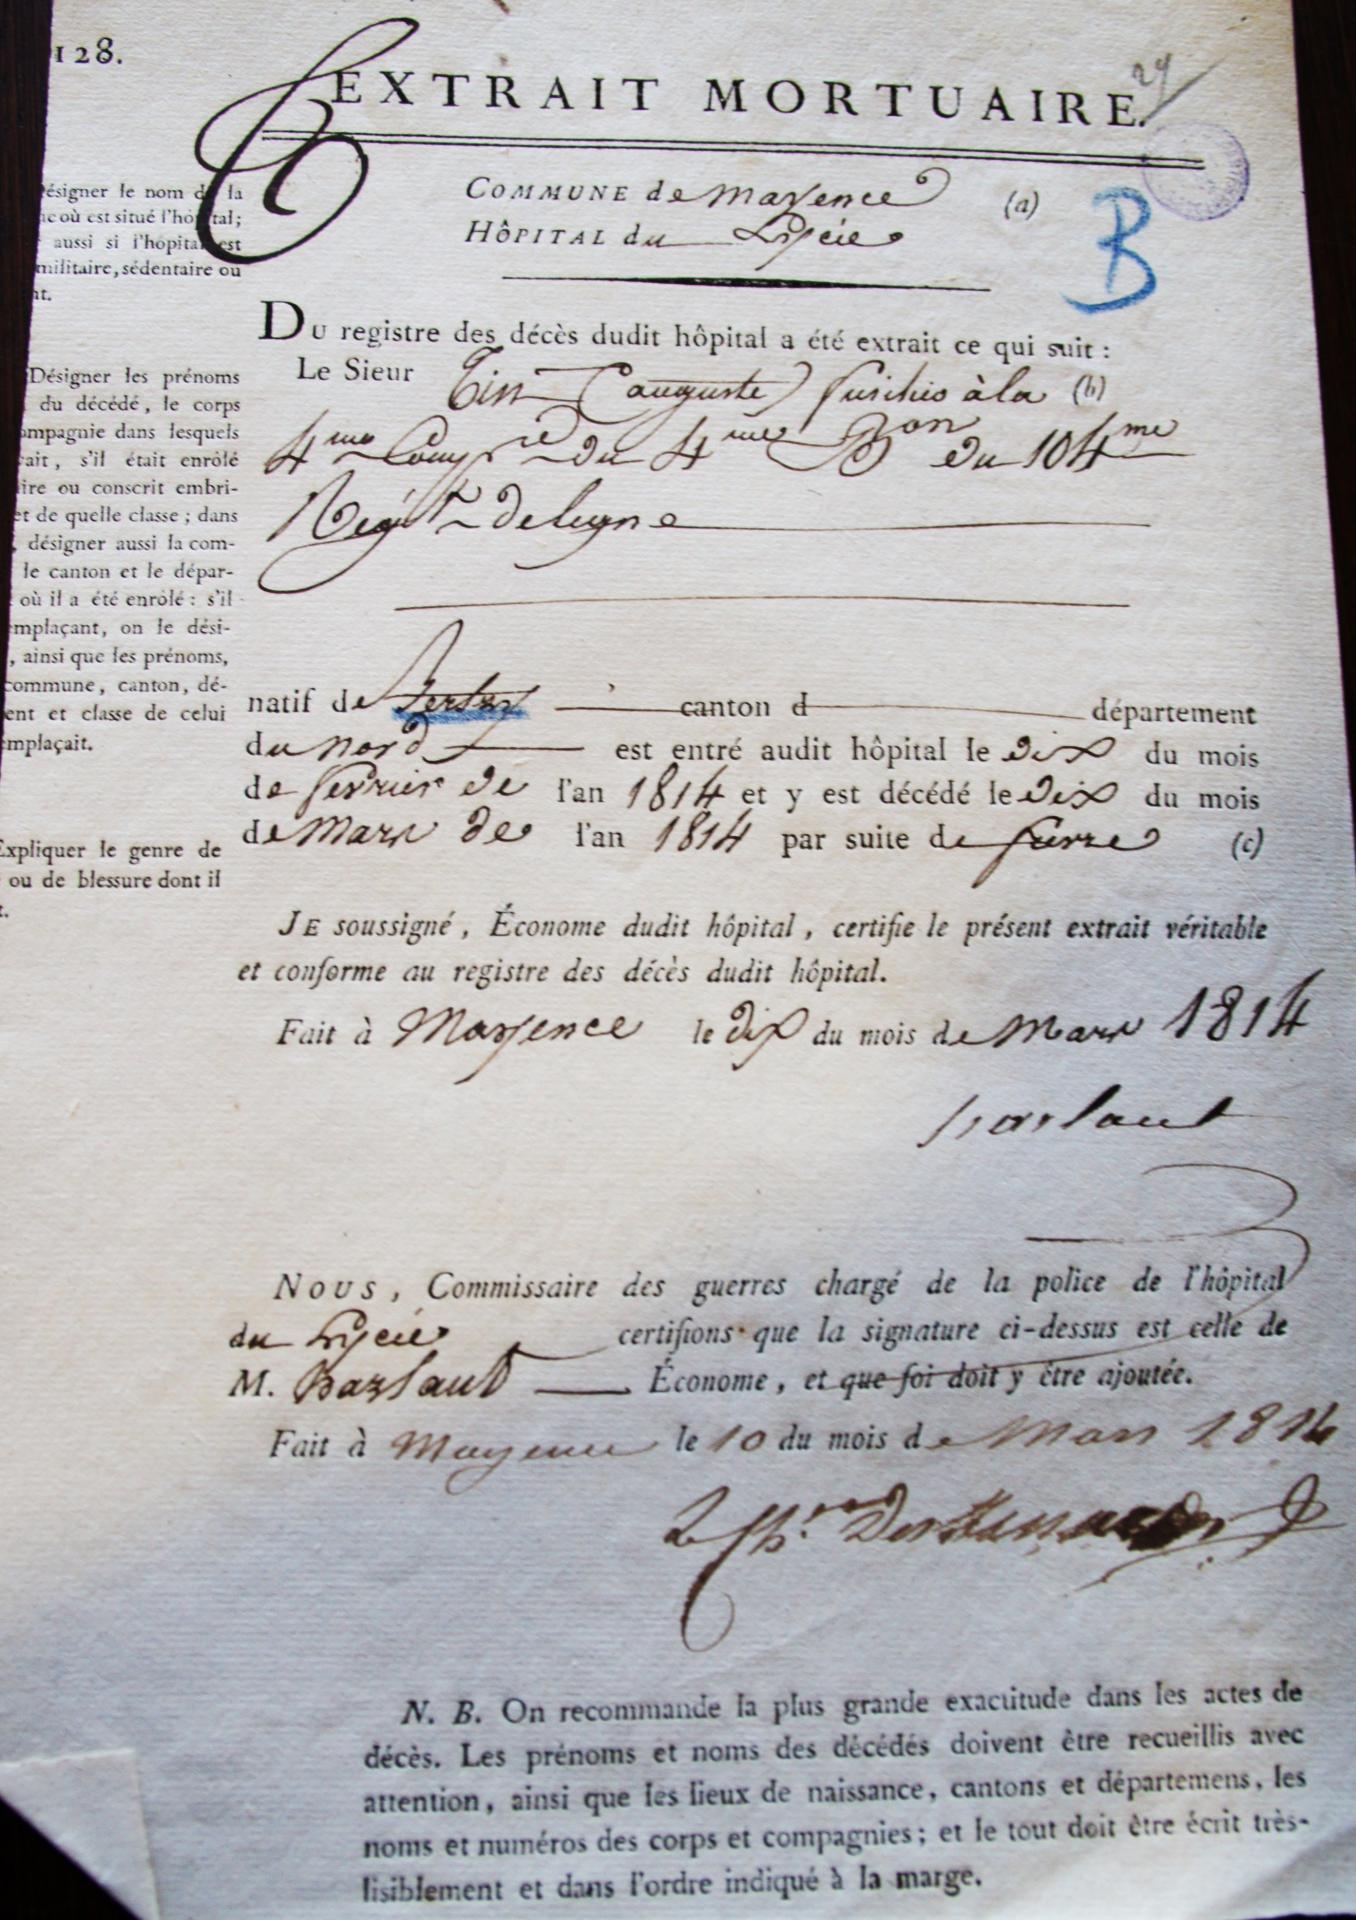 128.
EXTRAIT MORTUAIRE.
24
COMMUNE de Mayence (a)
HÔPITAL du Lycée
B
ésigner le nom de la
ne où est situé l'hôpital;
aussi si l'hôpital est
militaire, sédentaire ou
nt.
DU registre des décès dudit hôpital a été extrait ce qui suit :
Le Sieur Tiss (auguste) fusilier à la (b)
4me Compie du 4me Bon du 104me
Régt de ligne
Désigner les prénoms
du décédé, le corps
ompagnie dans lesquels
ait, s'il était enrôlé
ire ou conscrit embri-
et de quelle classe; dans
, désigner aussi la com-
le canton et le dépar-
où il a été enrôlé : s'il
mplaçant, on le dési-
, ainsi que les prénoms,
commune, canton, dé-
ent et classe de celui
mplaçait.
natif de canton d département
du nord est entré audit hôpital le dix du mois
de fevrier de l'an 1814 et y est décédé le dix du mois
de Mars de l'an 1814 par suite de fievre (c)
Expliquer le genre de
ou de blessure dont il
t.
JE soussigné, Économe dudit hôpital, certifie le présent extrait véritable
et conforme au registre des décès dudit hôpital.
Fait à Mayence le dix du mois de Mars 1814
Barlaut
NOUS, Commissaire des guerres chargé de la police de l'hôpital
du Lycée certifions que la signature ci-dessus est celle de
M. Barlaut Économe, et que foi doit y être ajoutée.
Fait à Mayence le 10 du mois de Mars 1814
N. B. On recommande la plus grande exactitude dans les actes de
décès. Les prénoms et noms des décédés doivent être recueillis avec
attention, ainsi que les lieux de naissance, cantons et départemens, les
noms et numéros des corps et compagnies; et le tout doit être écrit très-
lisiblement et dans l'ordre indiqué à la marge.